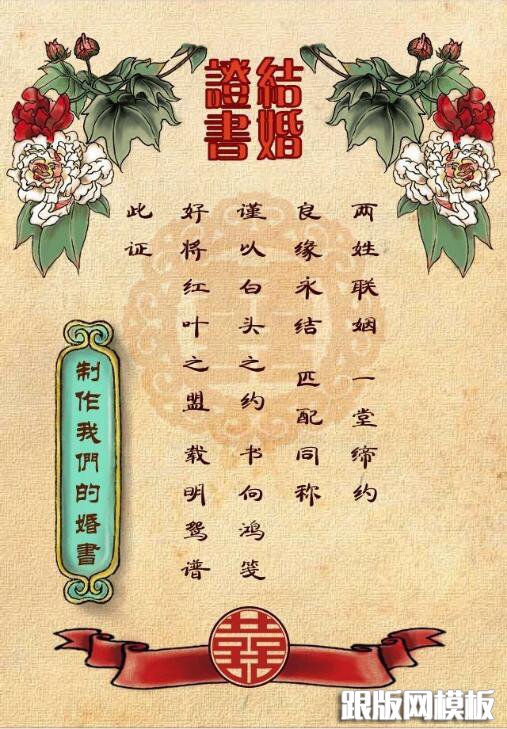 結婚
證書
两姓联姻 一堂缔约
良缘永结 匹配同称
谨以白头之约 书向鸿笺
好将红叶之盟 载明鸳谱
此证
制作我們的婚書
囍
跟版网模板